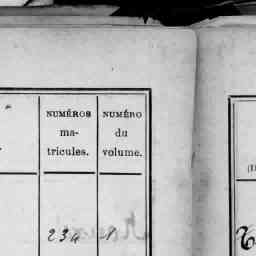 NUMÉROS
ma-
tricules.
NUMÉRO
du
volume.
234 1